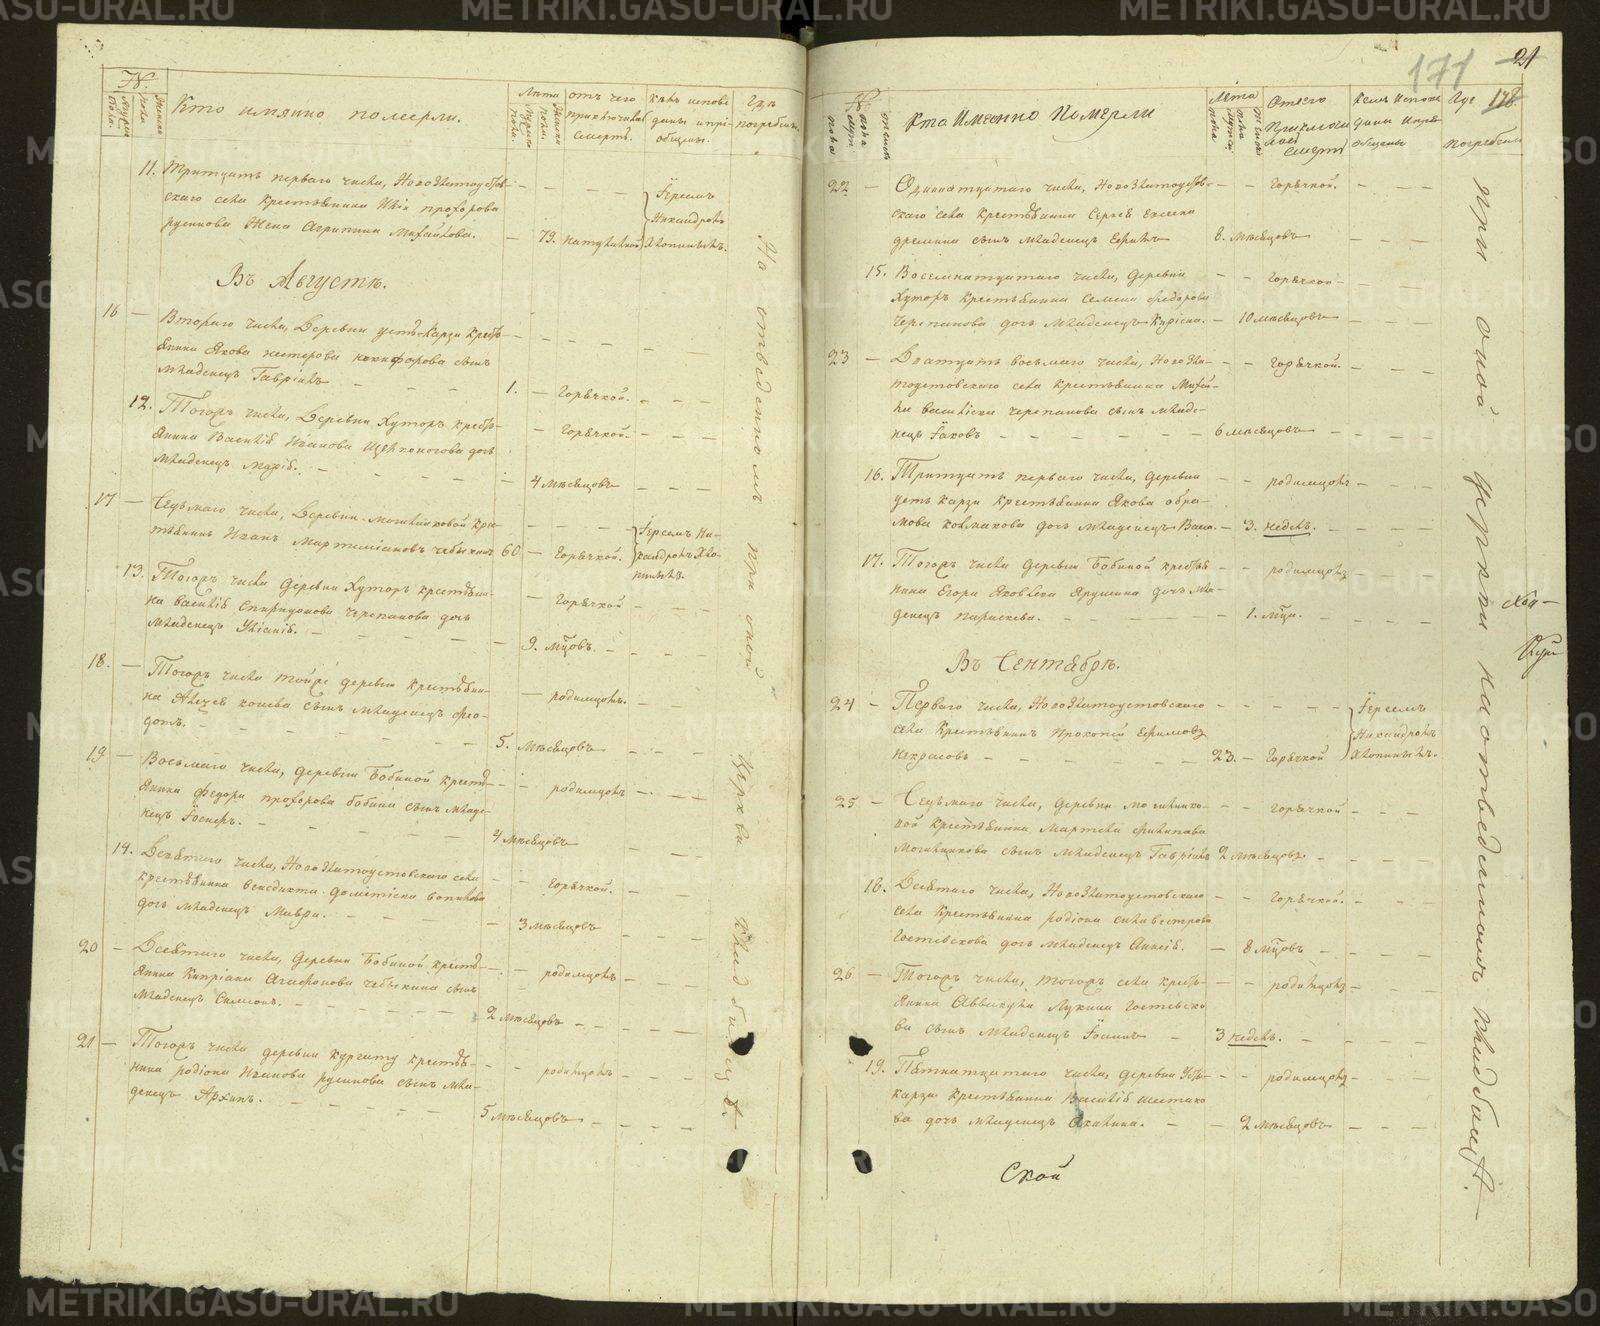 №
Кто имянно померли.
Лѣта
отъ чего приключилась смерть.
кѣмъ исповѣданы и пріобщены.
Гдѣ погребены.
11. Тритцать перваго числа, Новозлатоустов-
скаго села крестьянина Ильи прохорова
русинова жена Агрипина Михайлова. — 79. натуральной
Іереемъ
Никандромъ
Хлопинымъ.
Въ Августѣ.
16 — Втораго числа, Деревни усть-карзи кресть-
янина Якова нестерова никифорова сынъ
младенецъ Гавріилъ — 1. — Горячкой.
12. Тогожъ числа, Деревни Хуторъ кресть-
янина Василія Иванова дочь
младенецъ Марія. — 4 мѣсяцовъ — Горячкой.
17 — Седьмаго числа, Деревни могильниковой кре-
стьянинъ Иванъ Мартиміановъ чебыкинъ 60 — Горячкой.
Іереемъ Ни-
кандромъ Хло-
пинымъ.
13. Тогожъ числа деревни Хуторъ крестьяни-
на василія Спиридонова черепанова дочь
младенецъ Уліанія. — 9. мцовъ — Горячкой
18. — Тогожъ числа деревни крестьяни-
на Алексея конева сынъ младенецъ фео-
дотъ. — 5. мѣсяцовъ — родимцомъ.
19 — Восьмаго числа, деревни Бобиной кресть-
янина федора прохорова бобина сынъ младе-
нецъ Іосифъ. — 4 мѣсяцовъ — родимцомъ
14. Девятаго числа, Новозлатоустовскаго села
крестьянина венедикта дочь младенецъ Мавра. — 3 мѣсяцовъ — Горячкой.
20 — Десятаго числа, деревни Бобиной кресть-
янина Кипріана Агафонова чебыкина сынъ
младенецъ Симеонъ. — 2 мѣсяцовъ — родимцомъ
21 — Тогожъ числа деревни кургату кресть-
нина родіона Иванова русинова сынъ мла-
денецъ Архипъ. — 5 мѣсяцовъ — родимцомъ
На отведенномъ при оной церкви кладбищѣ.
171
21
178
№
Кто Имеанно Померли
Лѣта
Отчего Приключилась Смерть
Кемъ Испове даны и пріобщены
Где Погребены
22 — Одинатцатаго числа, Новозлатоустов-
скаго села крестьянина Сергея Евсеева
дремина сынъ младенецъ Ефимъ 8. мѣсяцовъ — Горячкой.
15. Восемнатцатаго числа, деревни
Хуторъ крестьянина Семена федорова
черепанова дочь младенецъ Кирікія. — 10 мѣсяцовъ — Горячкой
23 — Дватцать восьмаго числа, Новозла-
тоустовскаго села крестьянина Михай-
ла васильева черепанова сынъ младе-
нецъ Іаковъ — 6 мѣсяцовъ — Горячкой.
16. Тритцать перваго числа, деревни
усть карзи крестьянина Якова обра-
мова колмакова дочь младенецъ Васа. — 3. недель. — родимцомъ
17. Тогожъ числа деревни Бобиной кресть-
нина Егора Яковлева Ярушина дочь мла-
денецъ параскева. — 1. мца. — родимцомъ
Въ Сентябрѣ.
24 — Перваго числа, Новозлатоустовскаго
села крестьянинъ Прокопій Ефимовъ
некрасовъ — 23. — Горячкой
Іереемъ
Никандромъ
Хлопинымъ.
25 — Седьмаго числа, деревни могильнико-
вой крестьянина Мартена филипава
Могильникова сынъ младенецъ Гавріилъ 2 мѣсяцовъ — Горячкой
18. Десятаго числа, Новозлатоустовскаго
села крестьянина родіона силивестрова
Гостевскова дочь младенецъ Анисія. — 8 мцовъ — Горячкой.
26 — Тогожъ числа, тогожъ села кресть-
янина Аввакума Лукина Гостевско
ва сынъ младенецъ Іоаннъ — 3 недель. — родимцомъ
19. Пятнатцатаго числа, деревни Усть-
карзи крестьянина Василія шестако
ва дочь младенецъ Акилина. — 2 мѣсяцовъ — родимцомъ
Ской
при оной церкви на отведенномъ кладбищѣ.